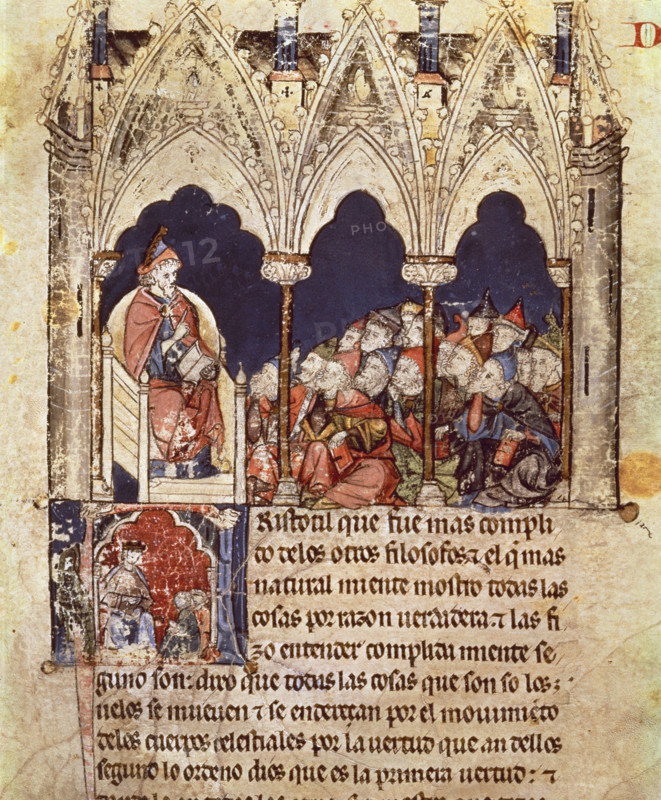 Ristotil que fue mas compli
do delos otros filosofos ⁊ el q̃ mas
natural miente mostro todas las
cosas por razon uerdadera ⁊ las fi
zo entender complida miente se
gund son: dixo que todas las cosas que son so los
cielos se mueuen ⁊ se enderençan por el mouimiẽto
delos cuerpos celestiales por la uertud que an dellos
segund lo ordeno dios que es la primera uertud: ⁊